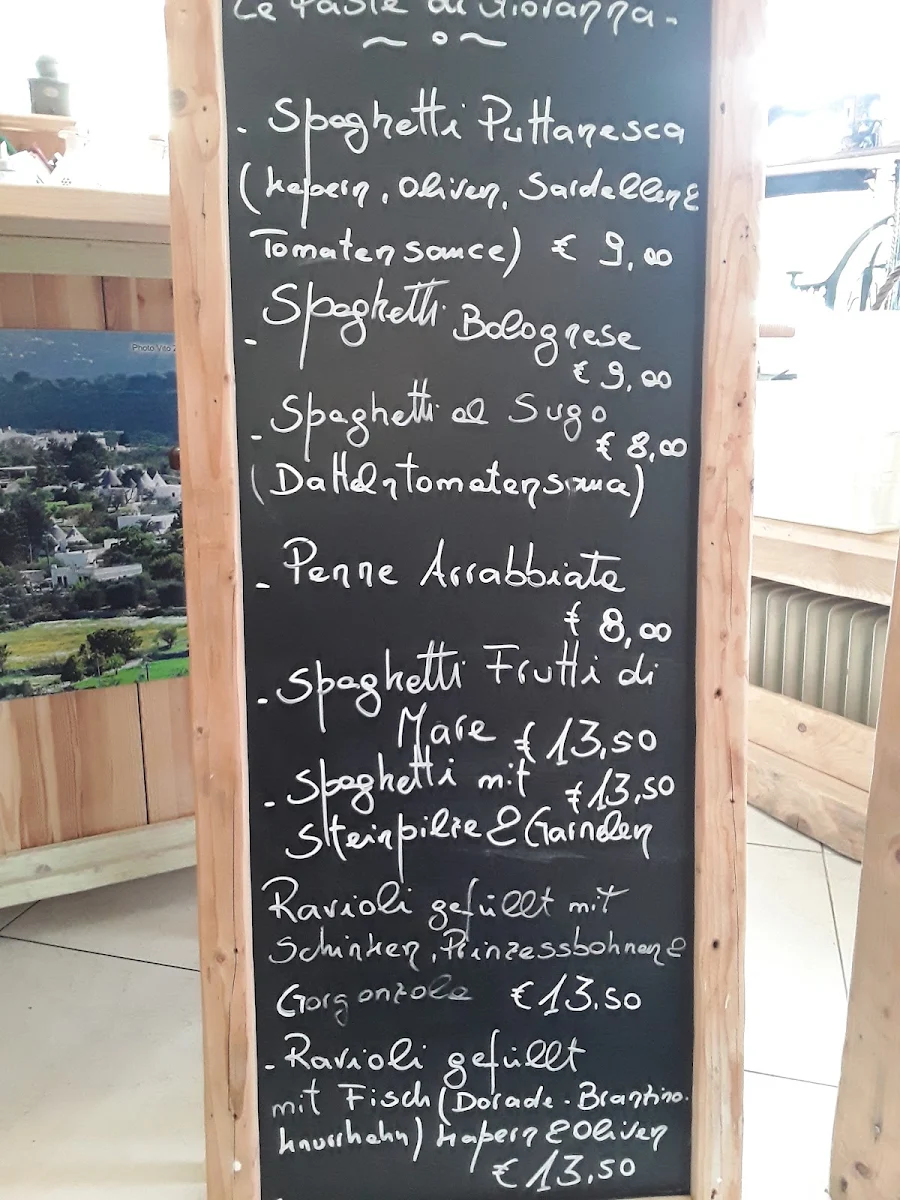 Le Paste di Giovanna.
~ o ~
- Spaghetti Puttanesca
(Kapern, Oliven, Sardellen &
Tomatensauce) € 9,00
- Spaghetti Bolognese
€ 9,00
- Spaghetti al Sugo
€ 8,00
(Datteltomatensauce)
- Penne Arrabbiata
€ 8,00
- Spaghetti Frutti di
Mare € 13,50
- Spaghetti mit € 13,50
Steinpilze & Garnelen
Ravioli gefüllt mit
Schinken, Prinzessbohnen &
Gorgonzola € 13.50
- Ravioli gefüllt
mit Fisch (Dorade - Brantino.
Knurrhahn) Kapern & Oliven
€ 13.50
Photo Vito